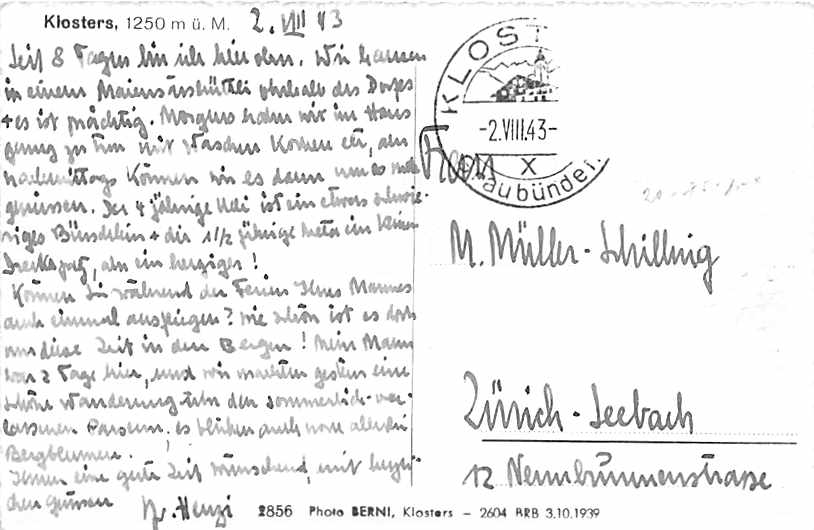 Klosters, 1250 m ü. M. 2. VIII 43
Seit 8 Tagen bin ich hier oben. Wir hausen
in einem Maiensässhüttli oberhalb des Dorfes
+ es ist prächtig. Morgens haben wir im Haus
genug zu tun mit Waschen Kochen etc, aber
nachmittags können wir es dann um so mehr
geniessen. Der 4 jährige Ueli ist ein etwas schwie-
riges Bündelein + die 1 1/2 jährige Meta ein kleiner
Dreckspatz, aber ein herziger!
Können Sie während der Ferien Ihres Mannes
auch einmal ausfliegen? Wie schön ist es doch
um diese Zeit in den Bergen! Mein Mann
war 2 Tage hier, und wir machten gestern eine
schöne Wanderung über den sommerlich-ver-
lassenen Parsenn. es blühen auch noch allerlei
Bergblumen.
Ihnen eine gute Zeit wünschend, mit herzli-
chen Grüssen
Henzi
KLOST
-2.VIII.43-
X
raubünden.
Frau
M. Müller-Schillnig
Zürich-Seebach
12 Nennbrunnenstrasse
2856 Photo BERNI, Klosters – 2604 BRB 3.10.1939